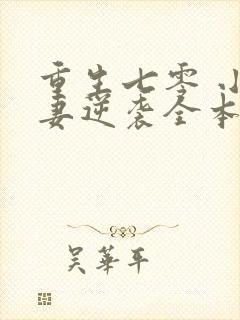 重生七零 小
妻逆袭全本
吴华平